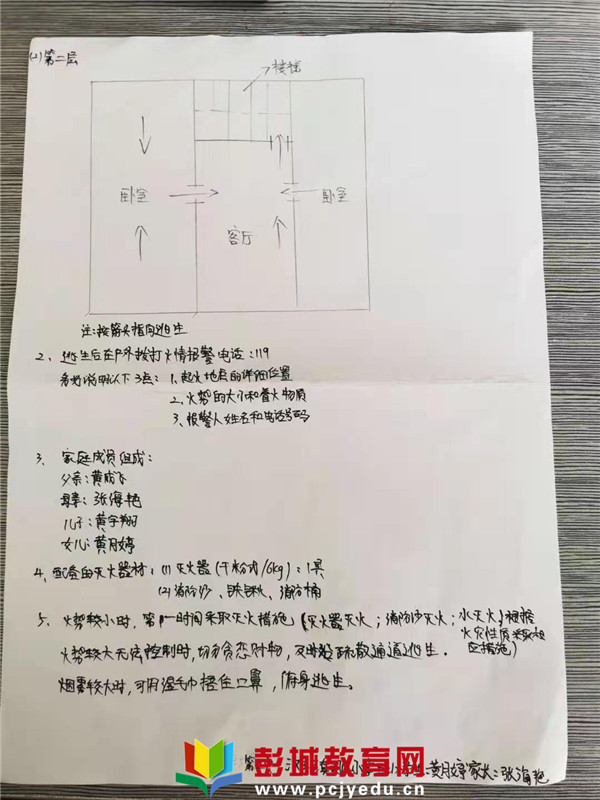 (2)第二层
楼梯
卧室
卧室
客厅
注:按箭头指向逃生
2、逃生后在户外拨打火情报警电话:119
务必说明以下3点:1、起火地点的详细位置
2、火势的大小和着火物质
3、报警人姓名和电话号码
3、家庭成员组成:
父亲:黄成飞
母亲:张海艳
儿子:黄宇翔
女儿:黄月婷
4、配备的灭火器材:(1)灭火器(干粉内/6kg):1具
(2)消防沙、铁锹、消防桶
5、火势较小时,第一时间采取灭火措施(灭火器灭火;消防沙灭火;水灭火)根据
火灾性质采取相
应措施)
火势较大无法控制时,切勿贪恋财物,及时沿疏散通道逃生.
烟雾较大时,可用湿毛巾捂住口鼻,俯身逃生。
黄月婷家长:张海艳
彭城教育网
www.pcjyedu.com.cn